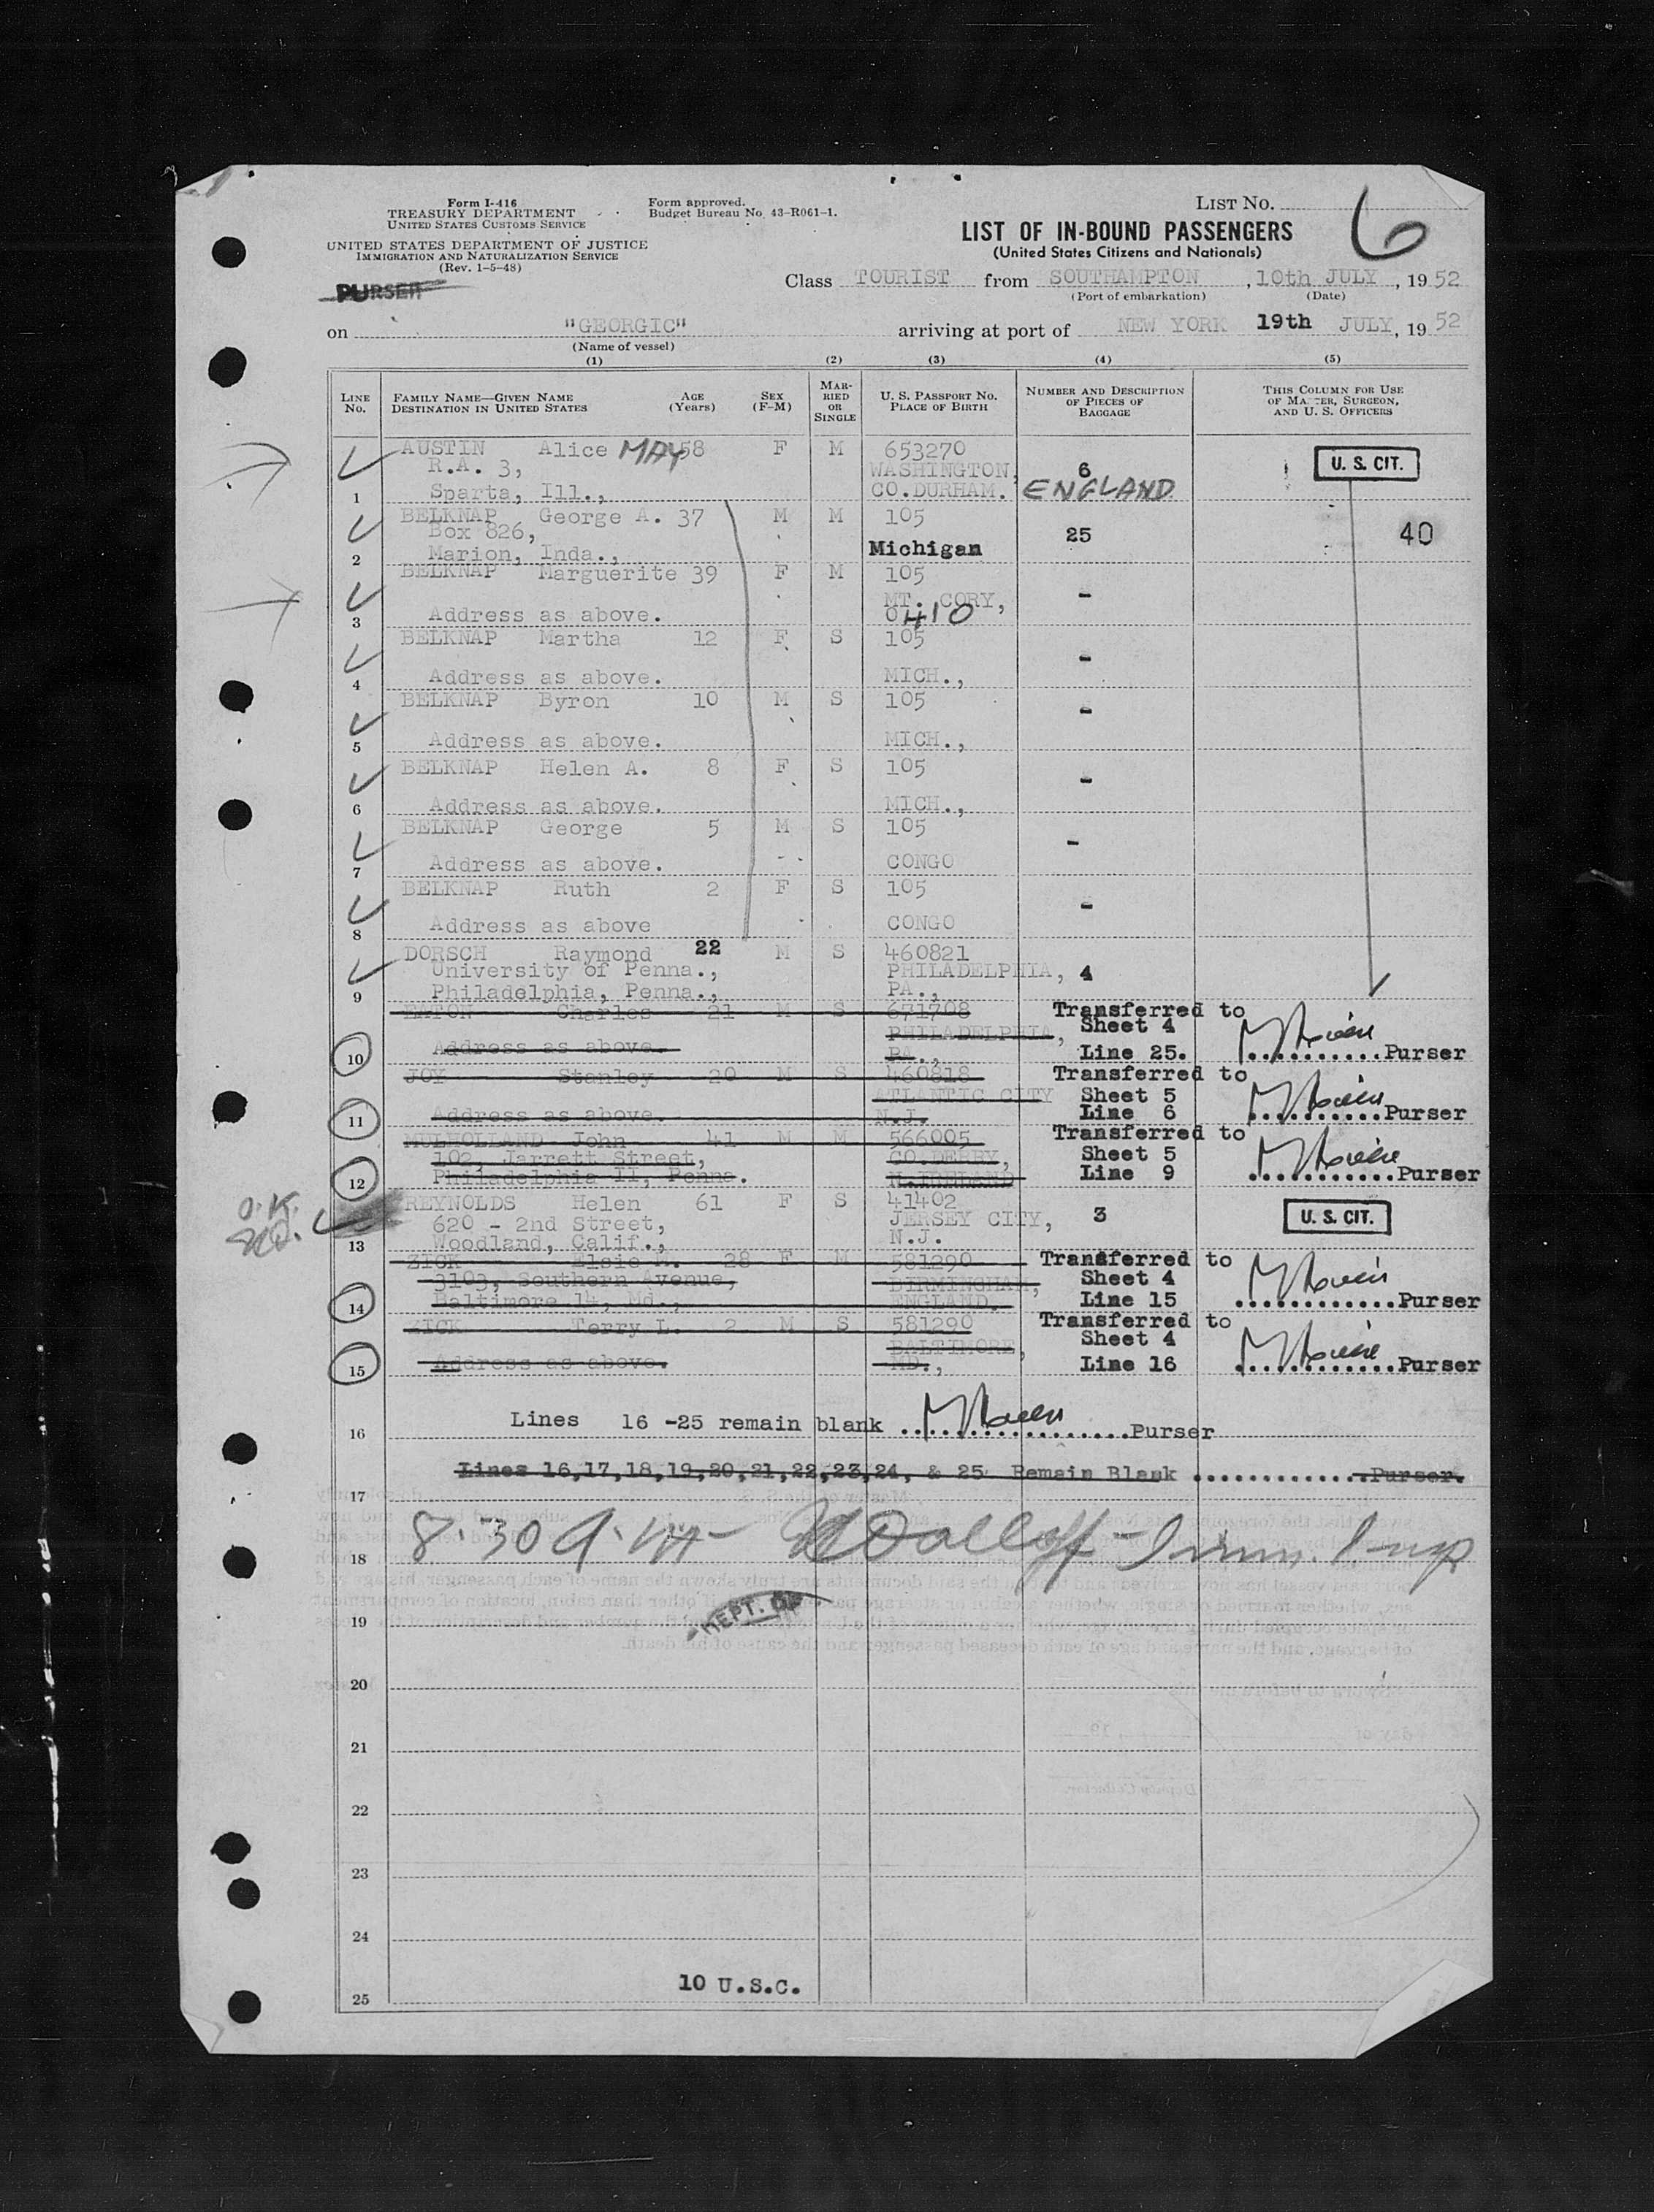 Form I-416
TREASURY DEPARTMENT
UNITED STATES CUSTOMS SERVICE
Form approved.
Budget Bureau No. 43-R061-1.
LIST NO. 6
UNITED STATES DEPARTMENT OF JUSTICE
IMMIGRATION AND NATURALIZATION SERVICE
(Rev. 1-5-48)
LIST OF IN-BOUND PASSENGERS
(United States Citizens and Nationals)
PURSER
Class TOURIST from SOUTHAMPTON, 10th JULY, 1952
(Port of embarkation) (Date)
on "GEORGIC" arriving at port of NEW YORK 19th JULY, 1952
(Name of vessel)
(1) (2) (3) (4) (5)
LINE No. FAMILY NAME—GIVEN NAME DESTINATION IN UNITED STATES AGE (Years) SEX (F-M) MARRIED OR SINGLE U. S. PASSPORT NO. PLACE OF BIRTH NUMBER AND DESCRIPTION OF PIECES OF BAGGAGE THIS COLUMN FOR USE OF MASTER, SURGEON, AND U. S. OFFICERS
AUSTIN Alice MAY 58 F M 653270
R.A. 3, WASHINGTON, 6 U. S. CIT.
1 Sparta, Ill., CO.DURHAM. ENGLAND
BELKNAP George A. 37 M M 105
Box 826, 25 40
2 Marion, Inda., Michigan
BELKNAP Marguerite 39 F M 105
MT. CORY, -
3 Address as above. O410
BELKNAP Martha 12 F S 105
-
4 Address as above. MICH.,
BELKNAP Byron 10 M S 105
-
5 Address as above. MICH.,
BELKNAP Helen A. 8 F S 105
-
6 Address as above. MICH.,
BELKNAP George 5 M S 105
-
7 Address as above. CONGO
BELKNAP Ruth 2 F S 105
-
8 Address as above CONGO
DORSCH Raymond 22 M S 460821
University of Penna., PHILADELPHIA, 4
9 Philadelphia, Penna., PA.,
EATON Charles 21 M S 671708 Transferred to
PHILADELPHIA, Sheet 4
10 Address as above. PA., Line 25. ...........Purser
JOY Stanley 20 M S 460818 Transferred to
ATLANTIC CITY Sheet 5
11 Address as above. N.J. Line 6 ...........Purser
MULHOLLAND John 41 M M 566005 Transferred to
102, Jarrett Street, CO.DERRY, Sheet 5
12 Philadelphia II, Penna. N.IRELAND Line 9 ............Purser
O.K. REYNOLDS Helen 61 F S 41402
620 - 2nd Street, JERSEY CITY, 3 U. S. CIT.
13 Woodland, Calif., N.J.
ZICK Elsie 28 F M 581290 Transferred to
3103, Southern Avenue, BIRMINGHAM, Sheet 4
14 Baltimore 14, Md., ENGLAND. Line 15 ............Purser
ZICK Terry L. 2 M S 581290 Transferred to
BALTIMORE, Sheet 4
15 Address as above. MD., Line 16 ............Purser
Lines 16 -25 remain blank .................Purser
16
Lines 16,17,18,19,20,21,22,23,24, & 25 Remain Blank .............Purser.
17
8.30 A.M-
18
DEPT. OF
19
20
21
22
23
24
10 U.S.C.
25